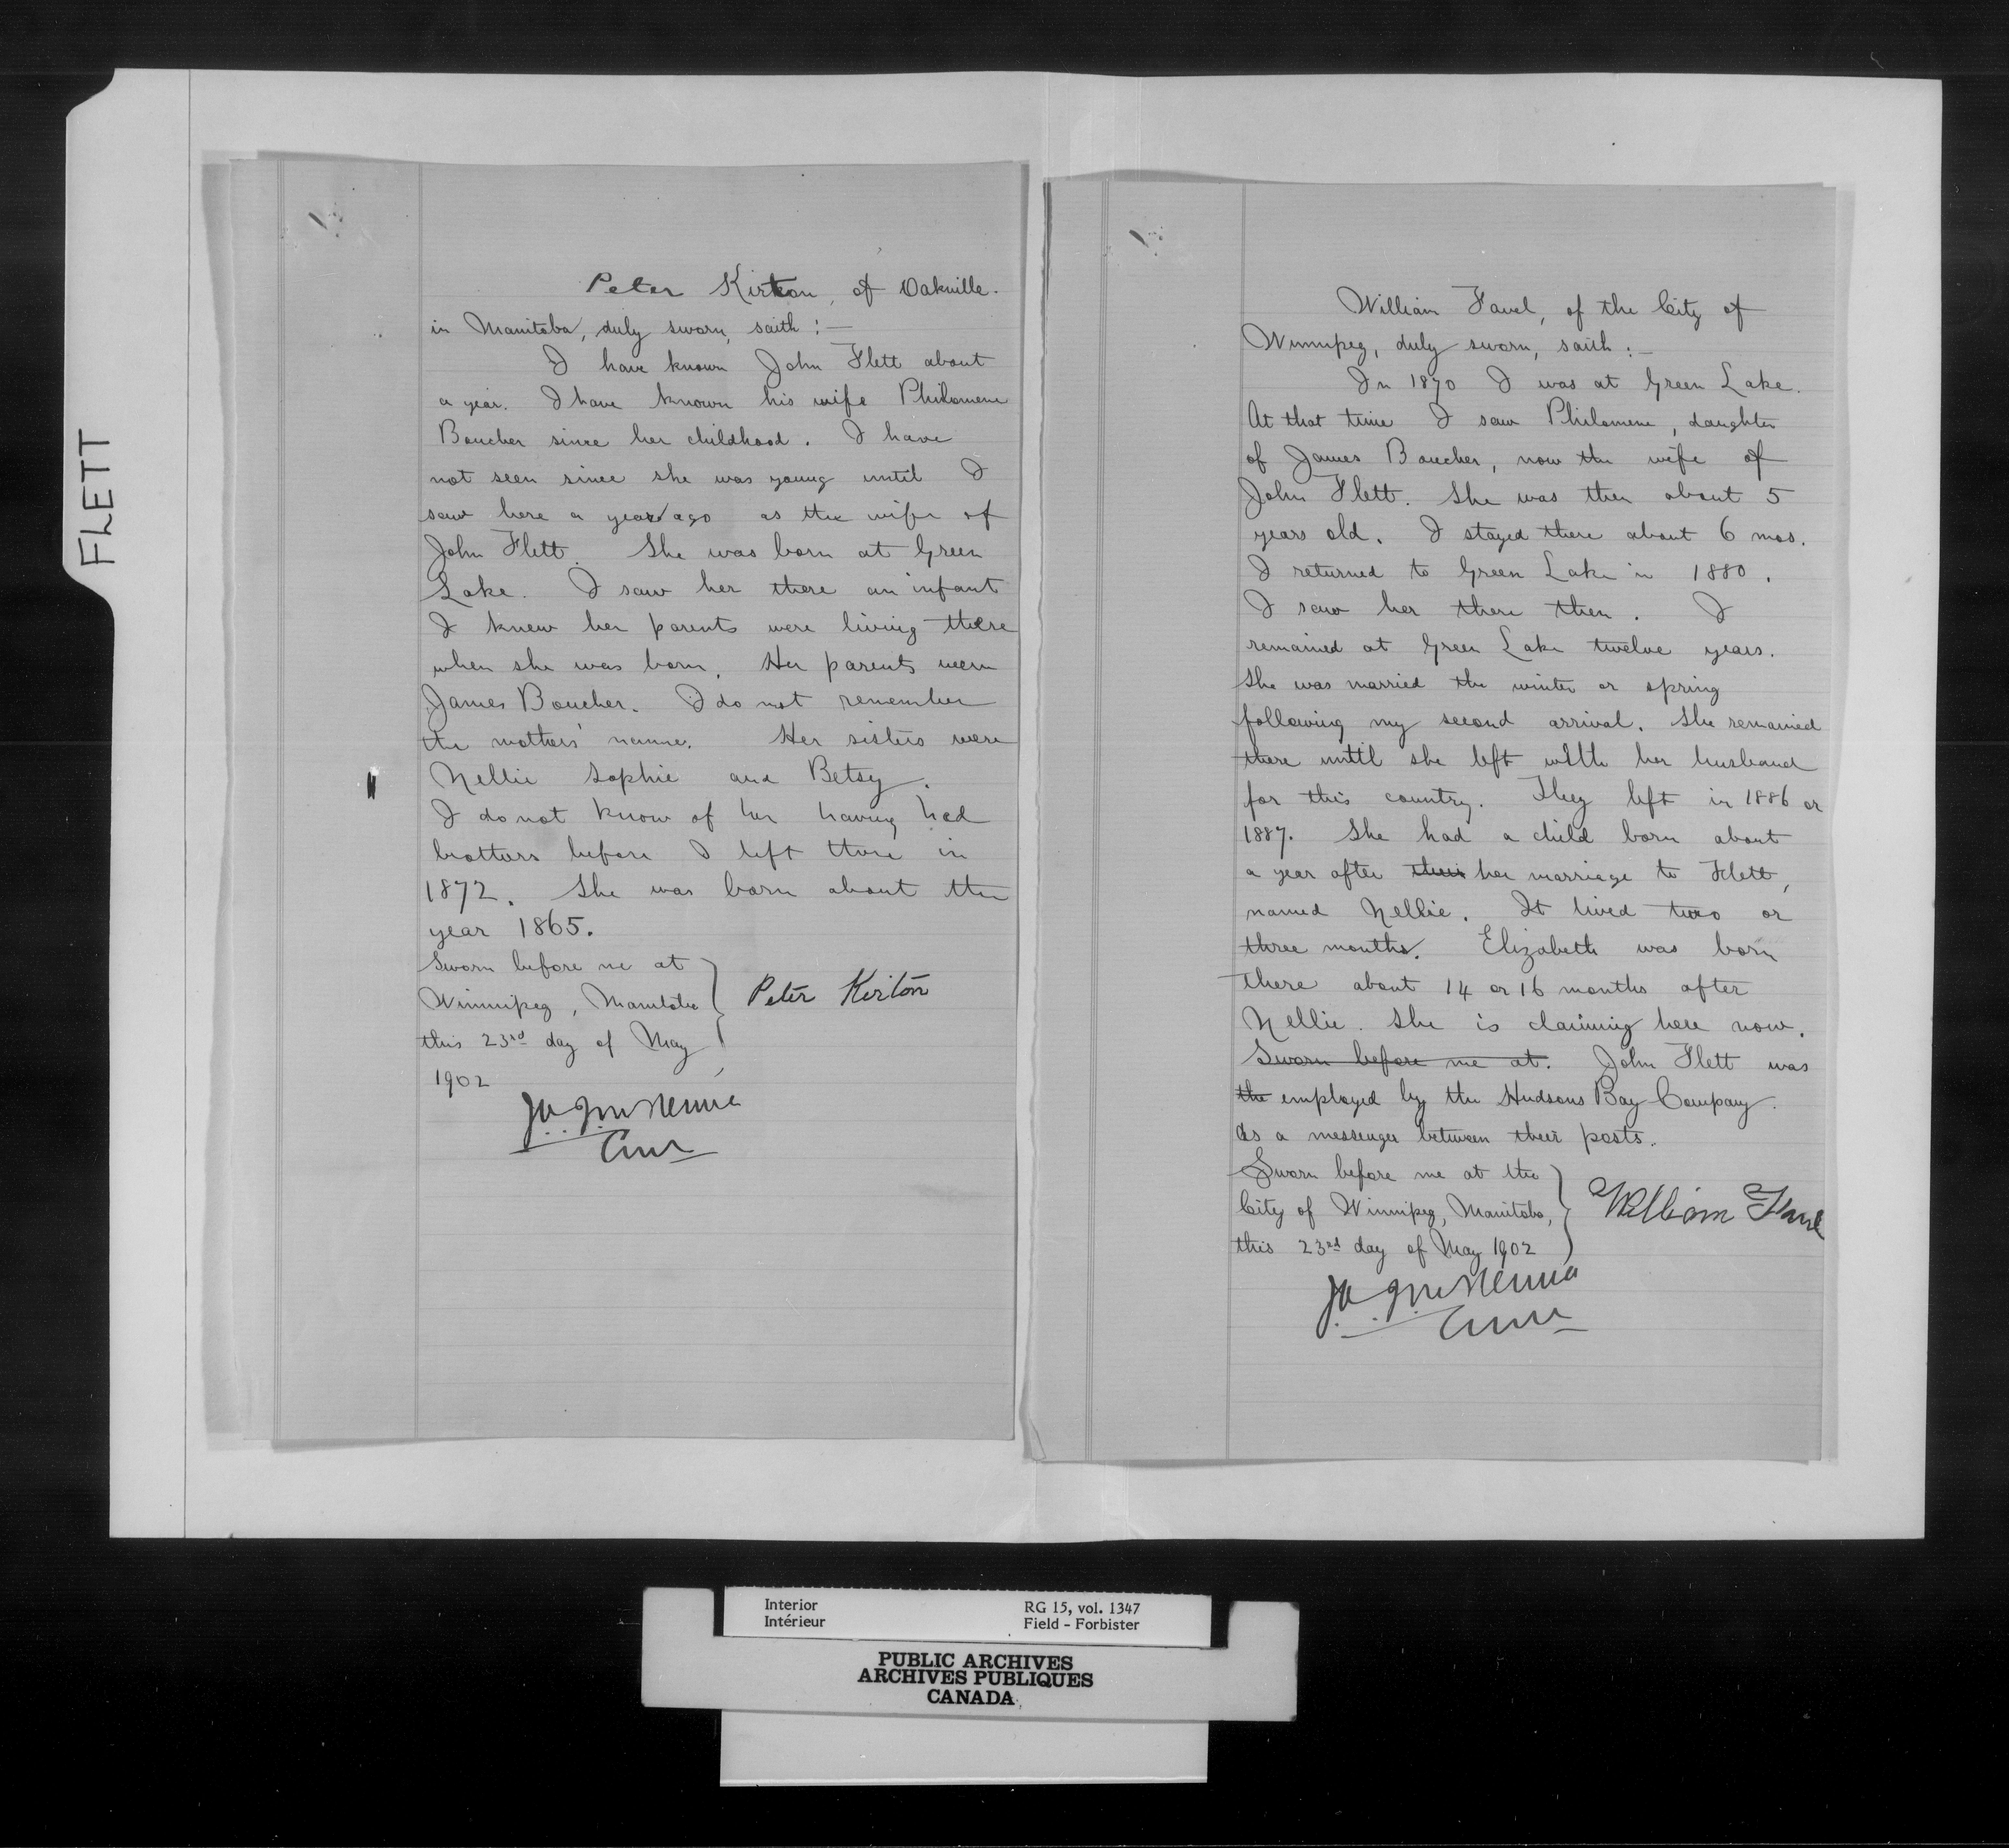 FLETT
Peter Kirton, of Oakville.
in Manitoba, duly sworn, saith :—
I have known John Flett about
a year. I have known his wife Philomene
Boucher since her childhood. I have
not seen since she was young until I
saw here a year ago as the wife of
John Flett. She was born at Green
Lake. I saw her there an infant
I knew her parents were living there
when she was born. Her parents were
James Boucher. I do not remember
the mothers' name. Her sisters were
Nellie Sophie and Betsy.
I do not know of her having had
brothers before I left there in
1872. She was born about the
year 1865.
Sworn before me at
Winnipeg, Manitoba
this 23rd day of May
1902
Peter Kirton
William Favel, of the City of
Winnipeg, duly sworn, saith :—
In 1870 I was at Green Lake.
At that time I saw Philomene, daughter
of James Boucher, now the wife of
John Flett. She was then about 5
years old. I stayed there about 6 mos.
I returned to Green Lake in 1880.
I saw her there then. I
remained at Green Lake twelve years.
She was married the winter or spring
following my second arrival. She remained
there until she left with her husband
for this country. They left in 1886 or
1887. She had a child born about
a year after their her marriage to Flett,
named Nellie. It lived two or
three months. Elizabeth was born
there about 14 or 16 months after
Nellie. She is claiming here now.
Sworn before me at. John Flett was
the employed by the Hudsons Bay Company.
As a messenger between their posts.
Sworn before me at the
City of Winnipeg, Manitoba,
this 23rd day of May 1902
William Favel
Interior
Intérieur
RG 15, vol. 1347
Field - Forbister
PUBLIC ARCHIVES
ARCHIVES PUBLIQUES
CANADA